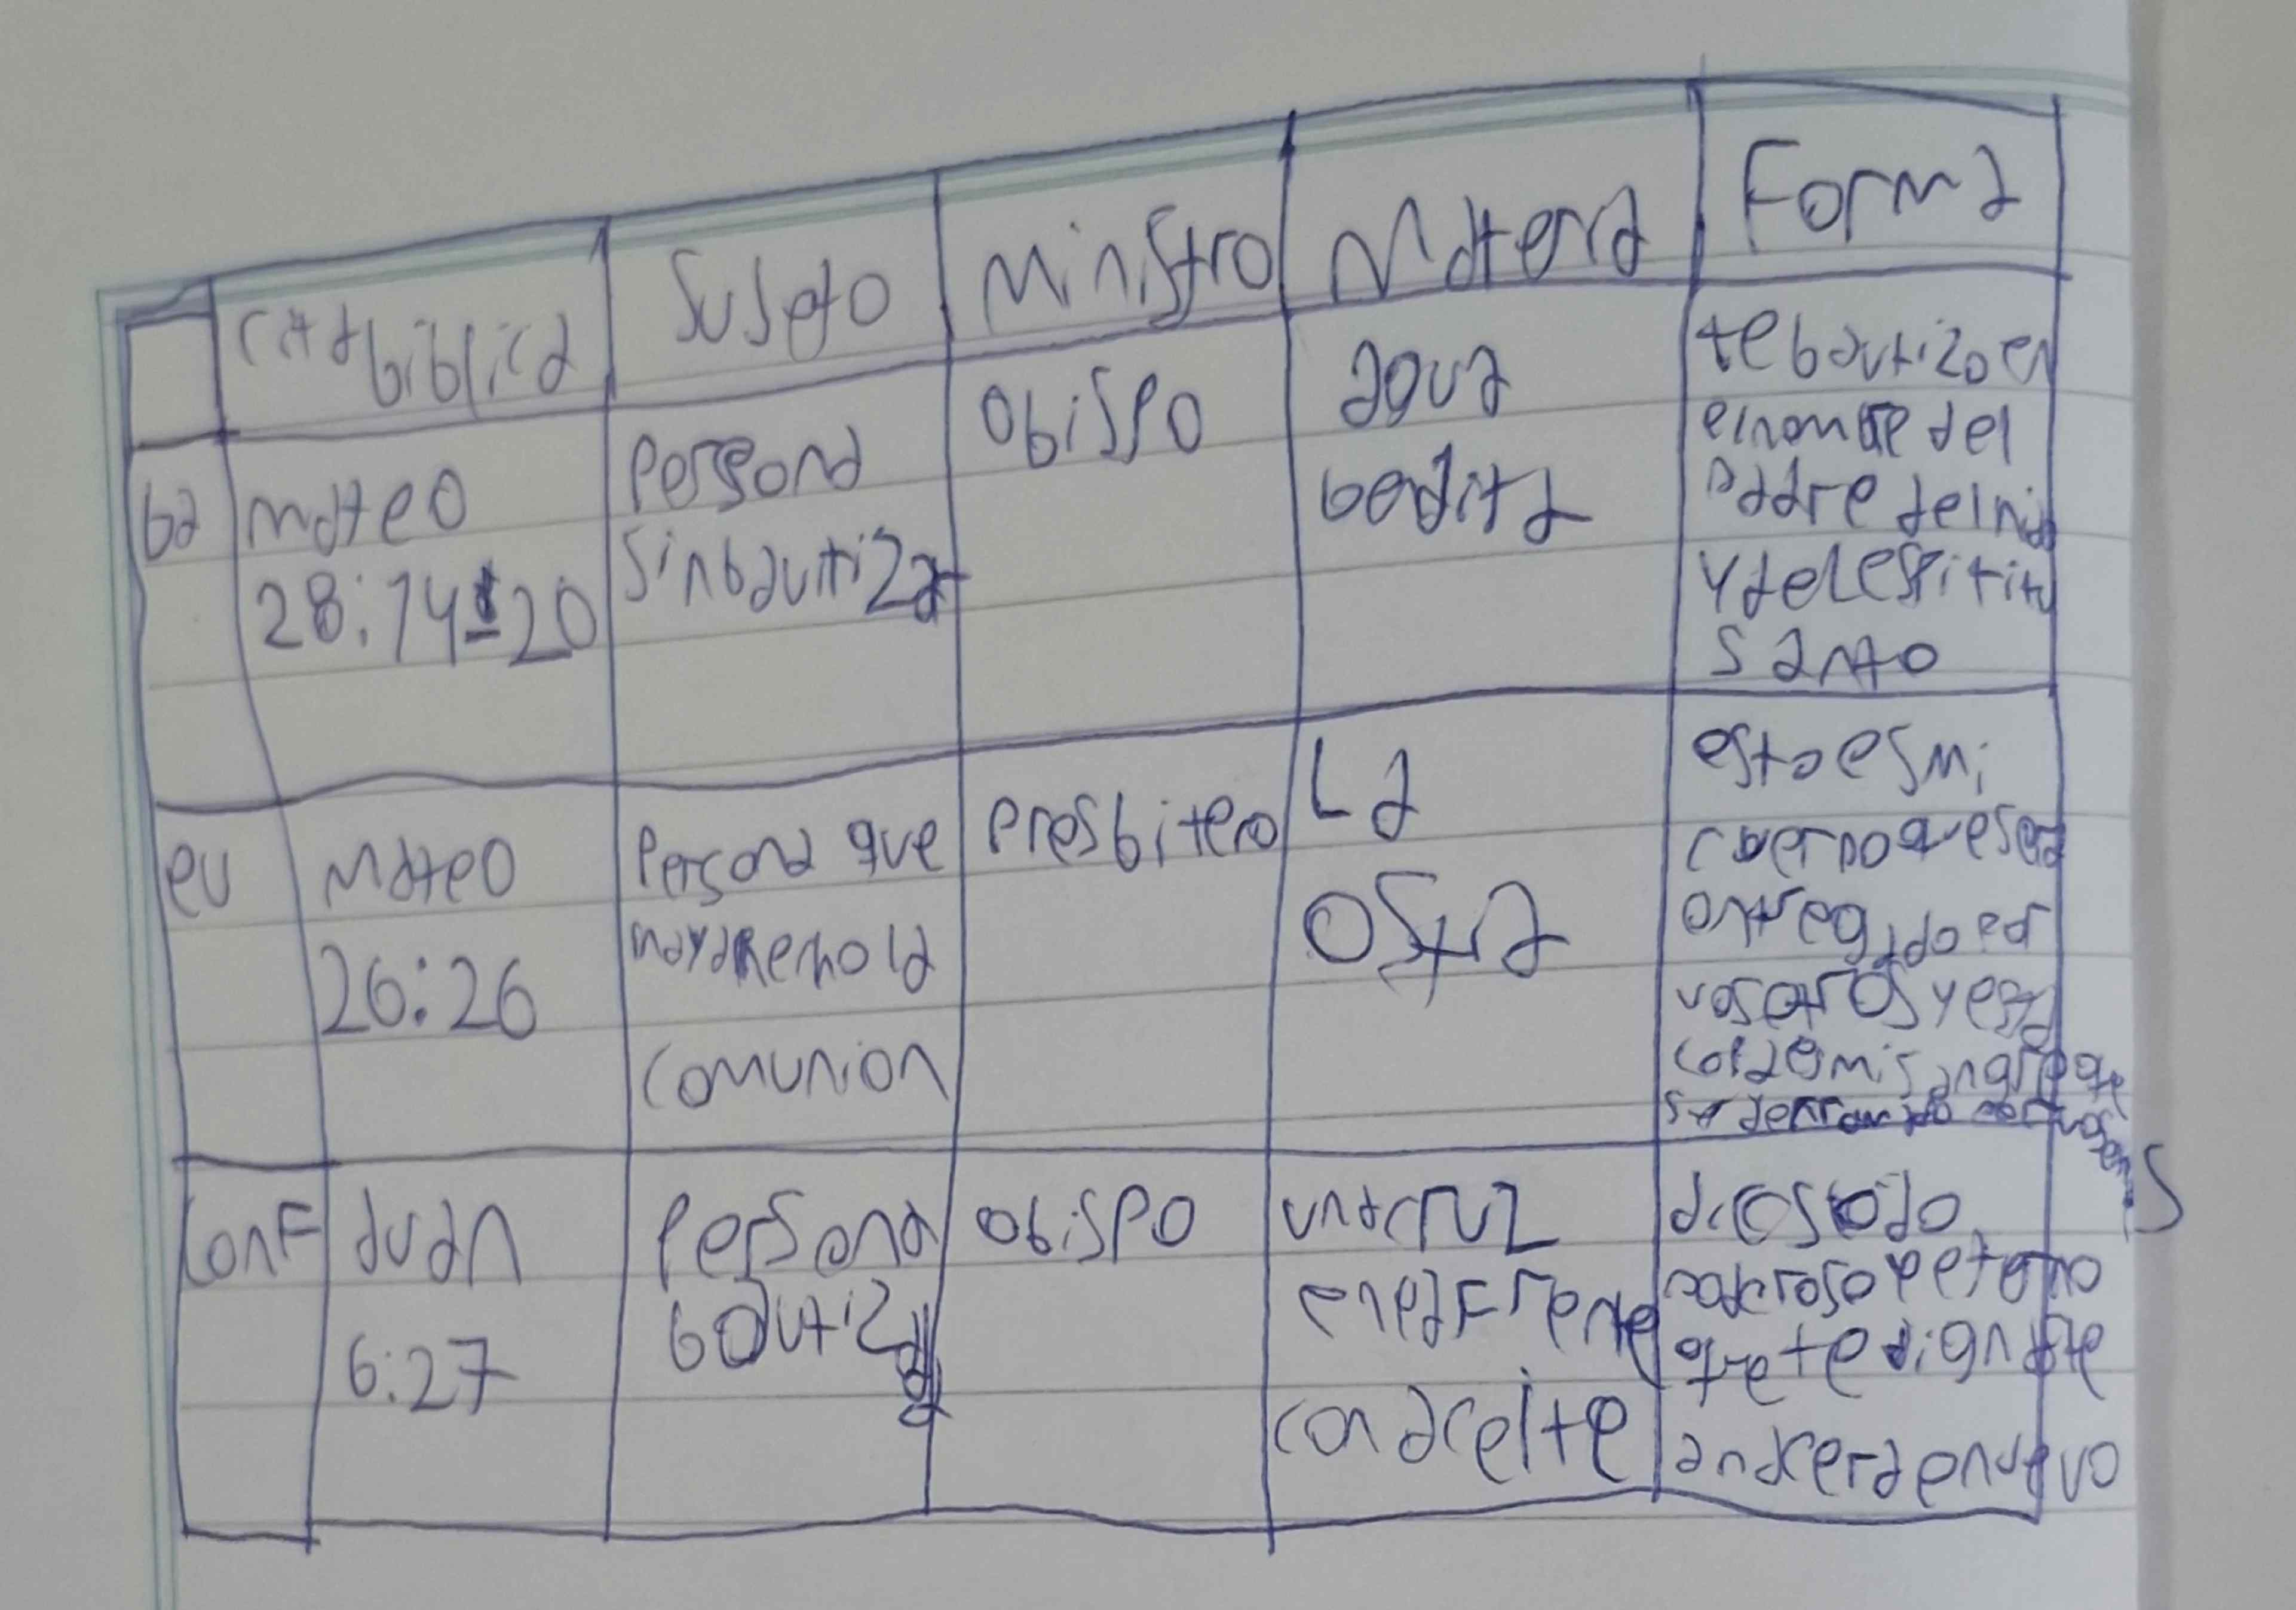 cita biblica
Sujeto
Ministro
Materia
Forma
ba
mateo
28:14-20
persona
sin bautizar
obispo
agua
bendita
te bautizo en
el nombre del
Padre del hijo
y del espiritu
santo
eu
mateo
26:26
persona que
haya hecho la
comunion
presbitero
La
ostia
esto es mi
cuerpo que sera
entregado por
vosotros y esta
copa es mi sangre que
sera derramada por vosotros
Conf
Juan
6:27
persona
bautizada
obispo
una cruz
en la frente
con aceite
todo
poderoso y eterno
que te dignaste
a nacer de nuevo